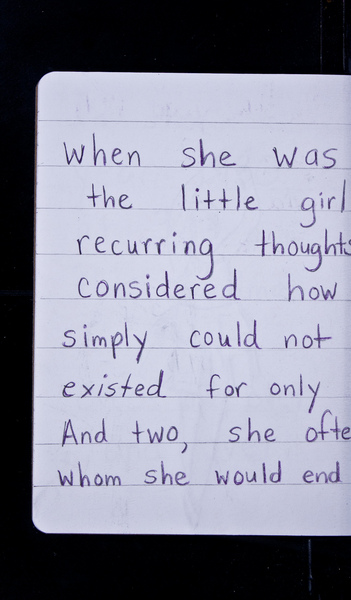 When she was
the little girl
recurring thoughts
considered how
simply could not
existed for only
And two, she ofte
whom she would end